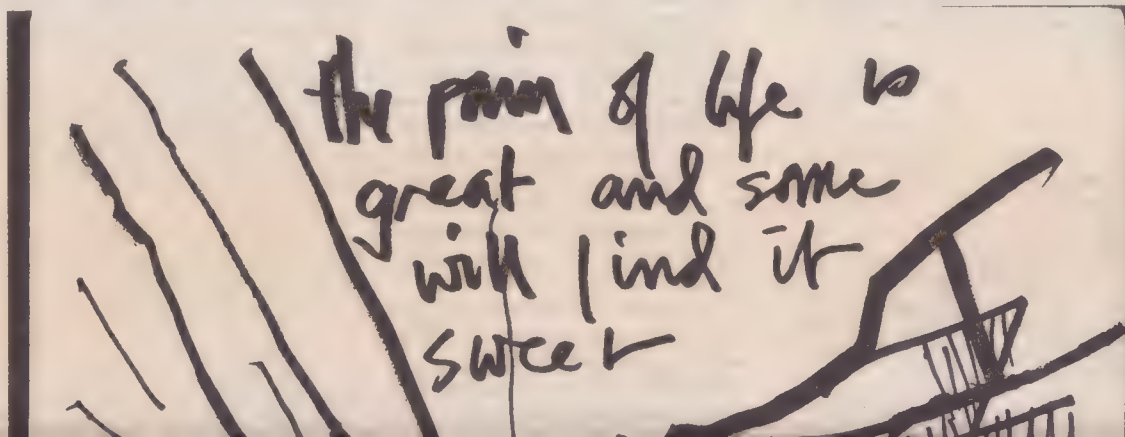 the pain of life is
great and some
will find it
sweet